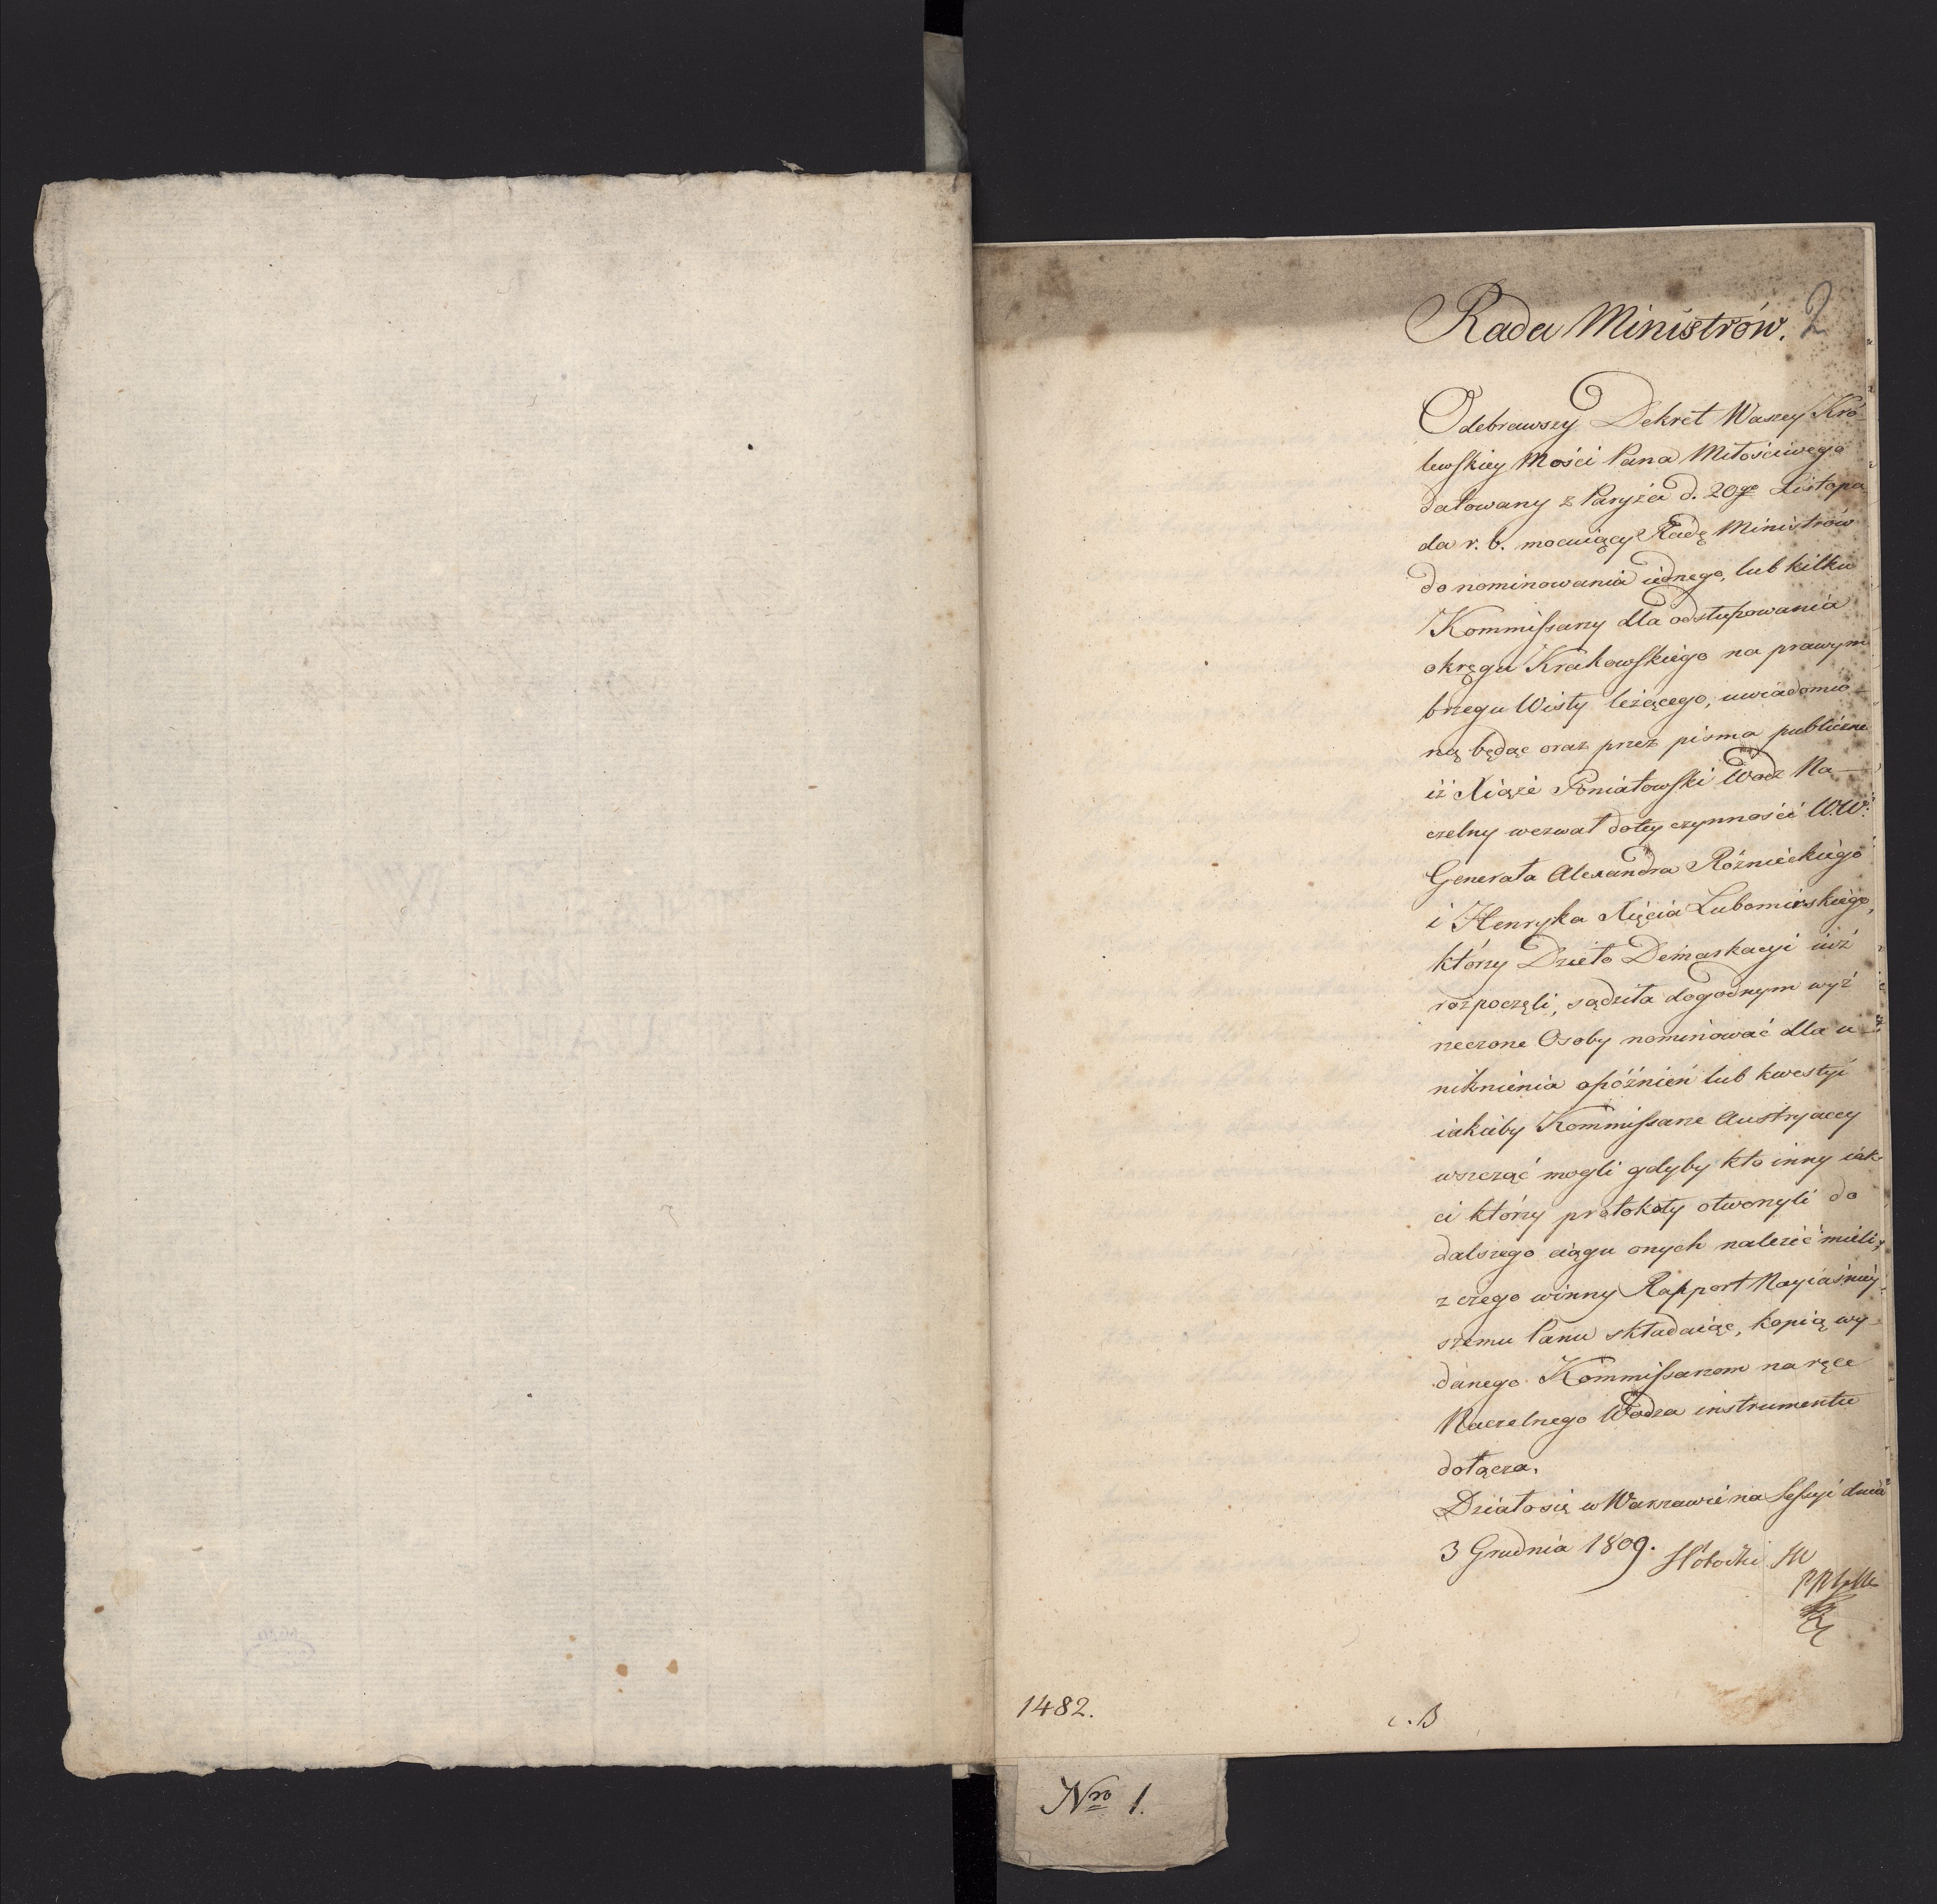 2
Rada Ministrów.
Odebrawszy Dekret Waszey Kró-
lewskiey Mości Pana Miłościwego
datowany z Paryża d. 20go Listopa
da r. b. mocuiący Radę Ministrów
do nominowania iednego, lub kilku
Kommissarzy dla odstępowania
okręgu Krakowskiego na prawym
brzegu Wisły leżącego, uwiadomio-
ną będąc oraz przez pisma publiczne
iż Xiąże Poniatowski Wódz Na-
czelny wezwał do tey czynności W.W.
Generała Alexandra Rożnieckiego
i Henryka Xięcia Lubomirskiego,
którzy Dzieło Demarkacyi iuż
rozpoczęli, sądziła dogodnym wyż
rzeczone Osoby nominować dla u-
niknienia opóźnień lub kwestyi
iakieby Kommissarze Austryaccy
wszcząć mogli gdyby kto inny iak
ci którzy protokoły otworzyli do
dalszego ciągu onych należeć mieli,
z czego winny Rapport Nayiaśniey-
szemu Panu składaiąc, kopią wy-
danego Kommissarzom na ręce
Naczelnego Wodza instrumentu
dołącza.
Działo się w Warszawie na Sessyi dnia
3 Grudnia 1809.
1482.
c. B
Nro 1.